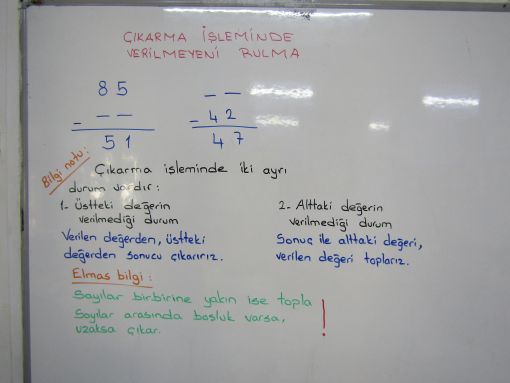 ÇIKARMA İŞLEMİNDE
VERİLMEYENİ BULMA
85
- _ _
51
_ _
- 42
47
Bilgi notu:
Çıkarma işleminde iki ayrı
durum vardır:
1- Üstteki değerin
verilmediği durum
Verilen değerden, üstteki
değerden sonucu çıkarırız.
2- Alttaki değerin
verilmediği durum
Sonuç ile alttaki değeri,
verilen değeri toplarız.
Elmas bilgi:
Sayılar birbirine yakın ise topla
Sayılar arasında boşluk varsa,
uzaksa çıkar.
!